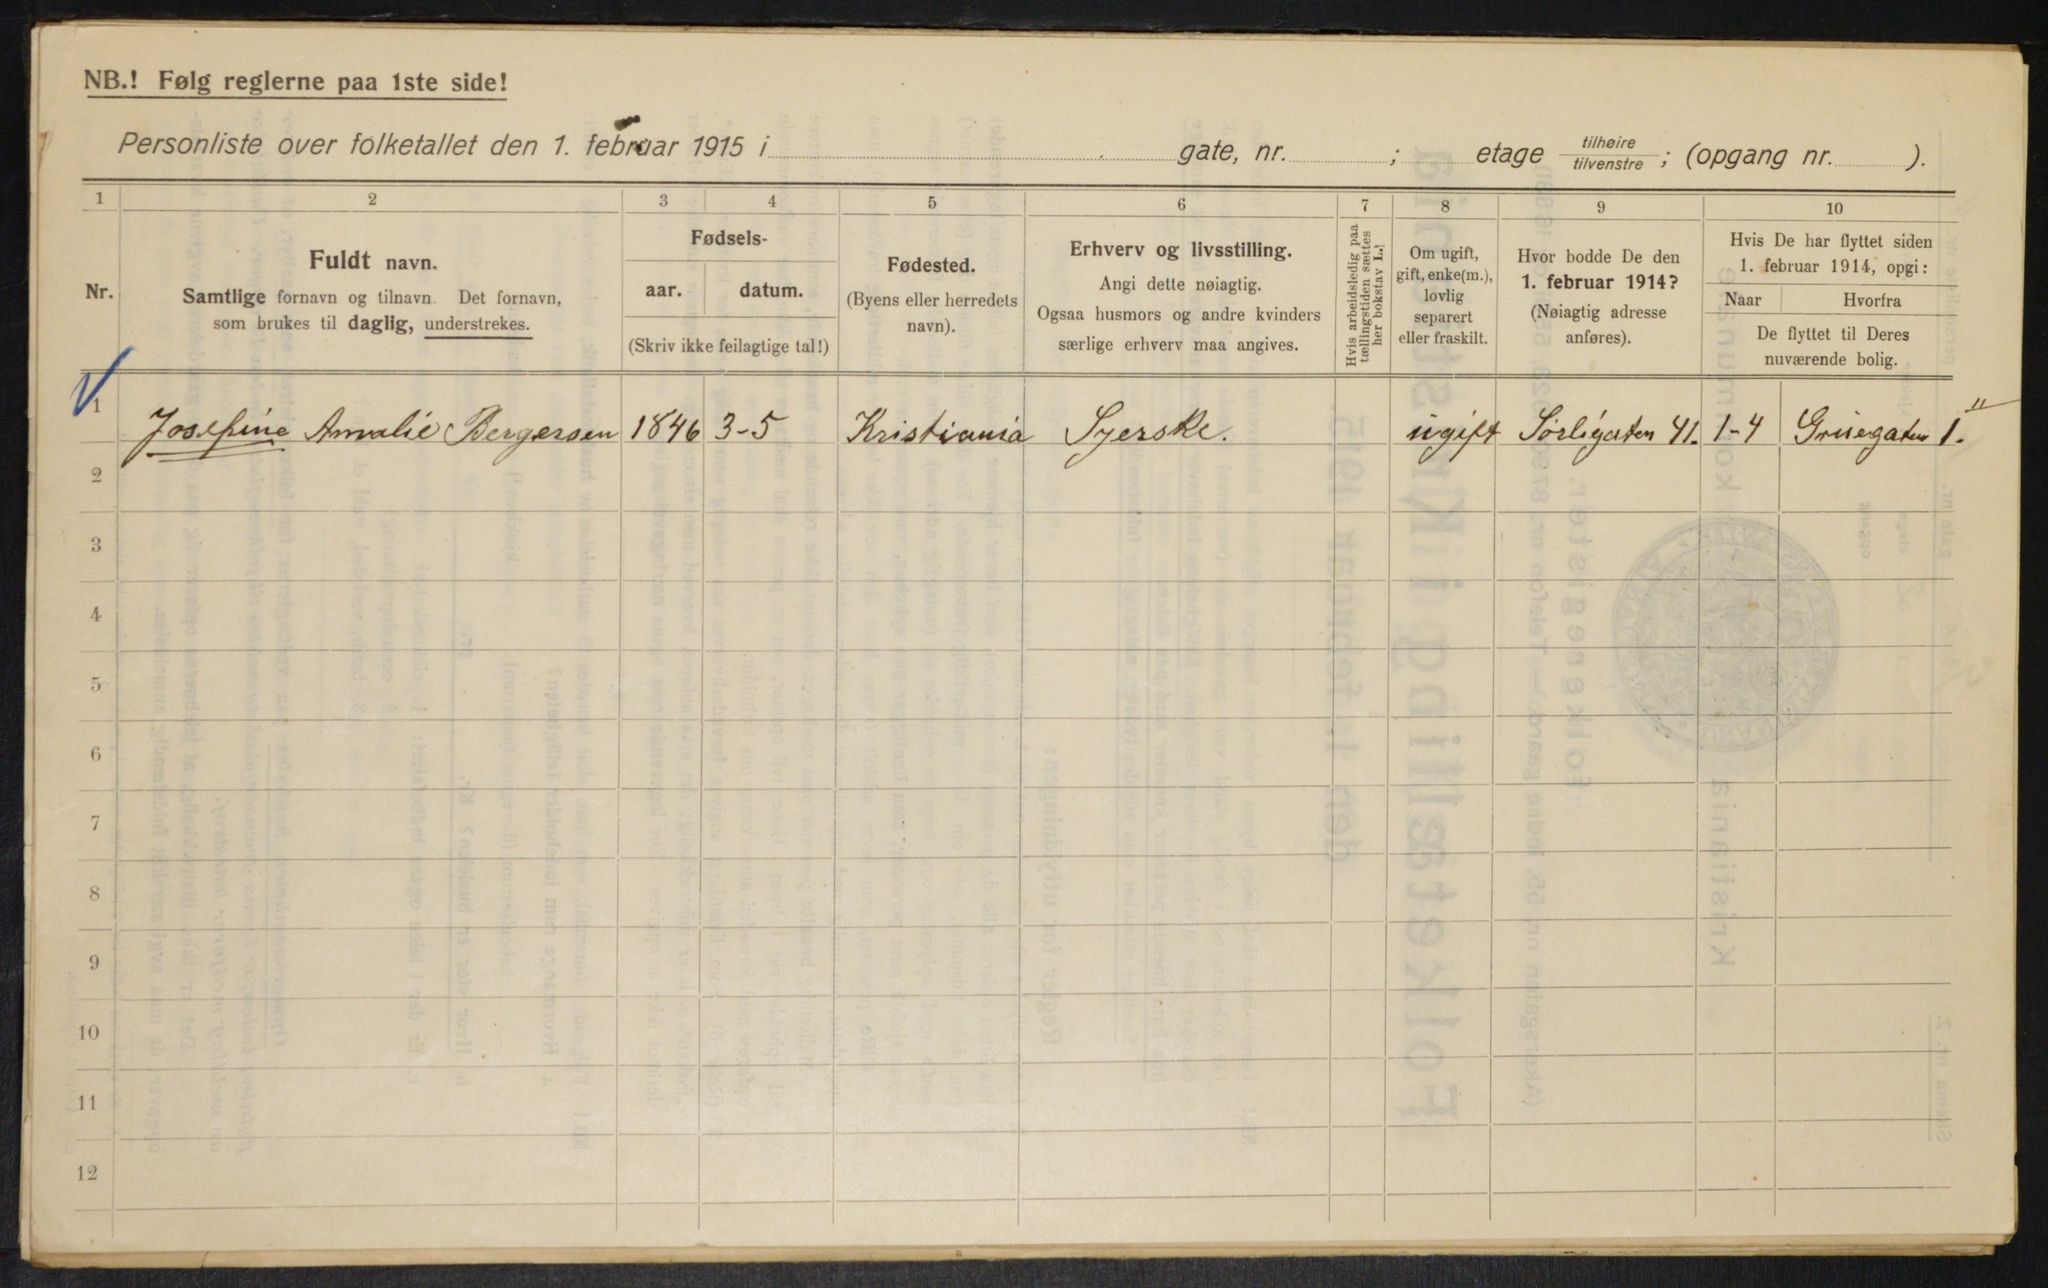 NB.! Følg reglerne paa 1ste side!
Personliste over folketallet den 1. februar 1915 i gate, nr. ; etage tilhøire tilvenstre ; (opgang nr. ).
1 2 3 4 5 6 7 8 9 10
Nr.
Fuldt navn.
Samtlige fornavn og tilnavn. Det fornavn,
som brukes til daglig, understrekes.
Fødsels-
aar. datum.
(Skriv ikke feilagtige tal!)
Fødested.
(Byens eller herredets
navn).
Erhverv og livsstilling.
Angi dette nøiagtig.
Ogsaa husmors og andre kvinders
særlige erhverv maa angives.
Hvis arbeidsledig paa
tællingstiden sættes
her bokstav L.!
Om ugift,
gift, enke(m.),
lovlig
separert
eller fraskilt.
Hvor bodde De den
1. februar 1914?
(Nøiagtig adresse
anføres).
Hvis De har flyttet siden
1. februar 1914, opgi:
Naar Hvorfra
De flyttet til Deres
nuværende bolig.
1 Josefine Amalie Bergersen 1846 3-5 Kristiania Syerske. ugift Sørligaten 41. 1-4 Gruegaten 1. "
2
3
4
5
6
7
8
9
10
11
12